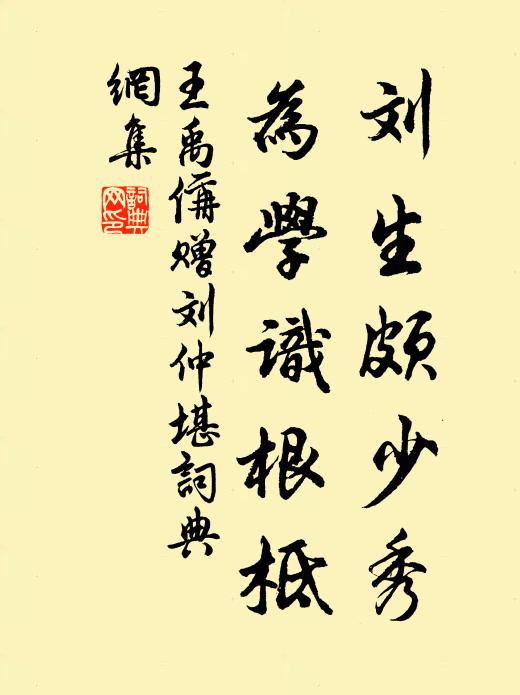 刘生颇少秀
為學識根柢
王禹偁赠刘仲堪詞典
網集
詞典
网印